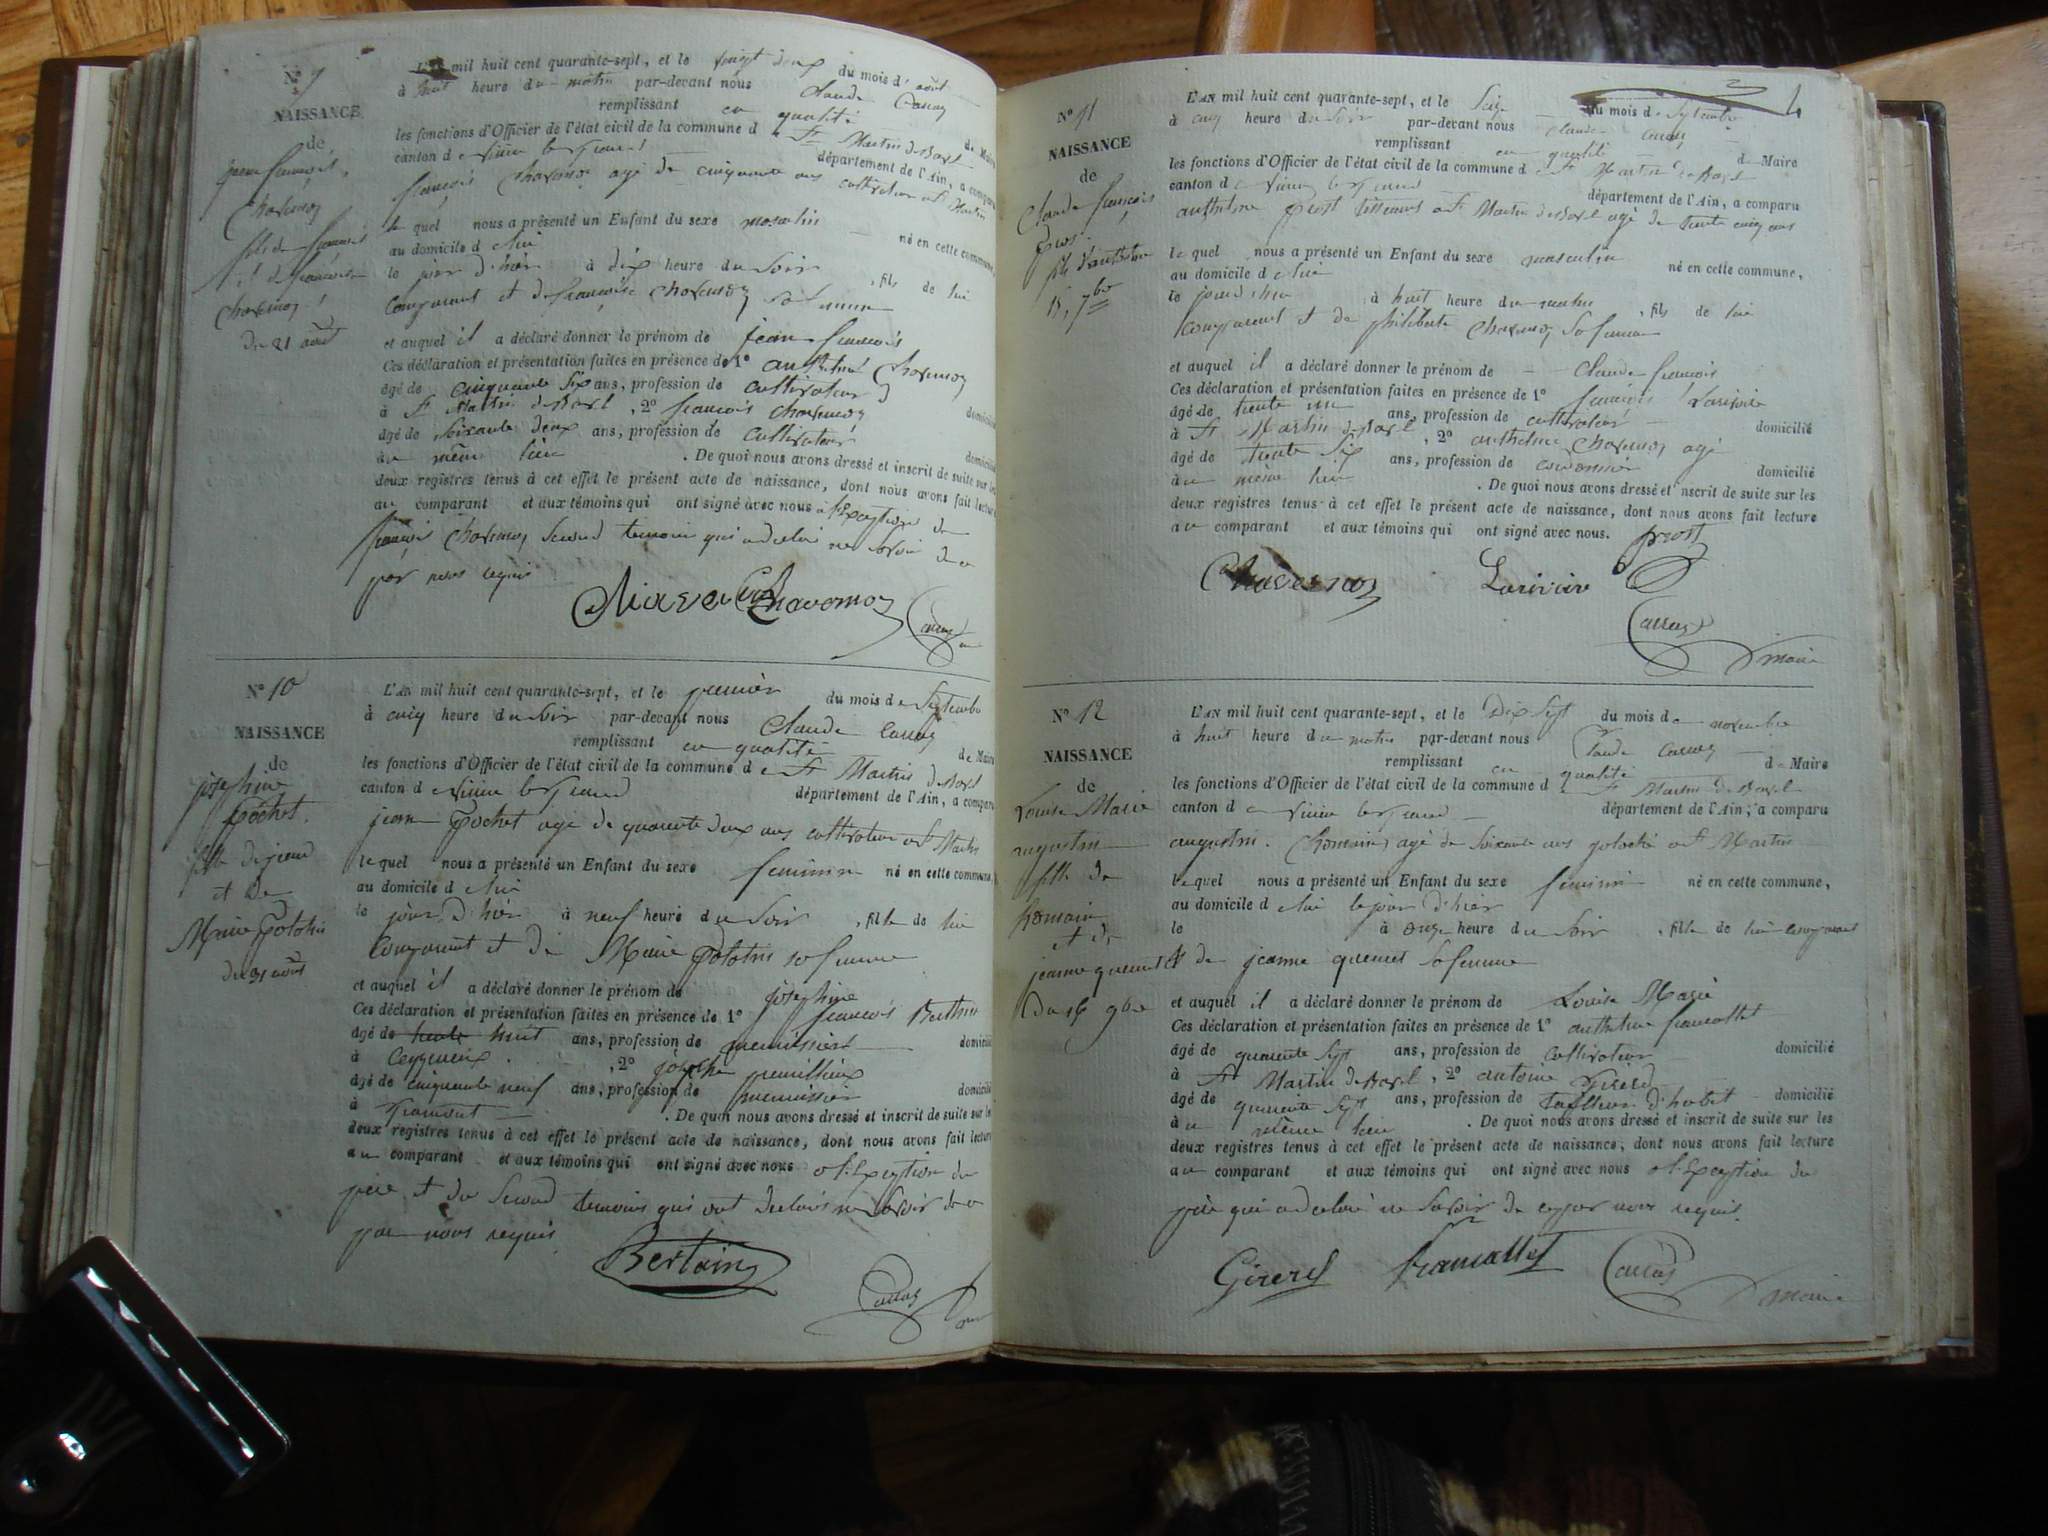 N° 9
NAISSANCE
de
jean françois
Chavernoz
fils de françois
et de françoise
Chavernoz
du 21 août
L'AN mil huit cent quarante-sept, et le vingt deux du mois d'août
à huit heure du matin par-devant nous Claude Carraz
remplissant en qualité de Maire
les fonctions d'Officier de l'état civil de la commune de St Martin de Bavel
canton de virieu le grand département de l'Ain, a comparu
françois Chavernoz agé de cinquante ans cultivateur a St Martin
le quel nous a présenté un Enfant du sexe masculin né en cette commune,
au domicile de lui
le jour d'hier à dix heure du soir , fils de lui
Comparant et de françoise Chavernoz sa femme
et auquel il a déclaré donner le prénom de jean françois
Ces déclaration et présentation faites en présence de 1° anthelme Chavernoz
âgé de cinquante six ans, profession de cultivateur domicilié
à St Martin de Bavel , 2° françois Chavernoz
âgé de soixante deux ans, profession de cultivateur domicilié
au même lieu . De quoi nous avons dressé et inscrit de suite sur les
deux registres tenus à cet effet le présent acte de naissance, dont nous avons fait lecture
au comparant et aux témoins qui ont signé avec nous a l'Exception de
françois Chavernoz second temoin qui a declaré ne savoir de ce
par nous requis
Chavernoz Carraz
N° 10
NAISSANCE
de
josephine
pochet.
fille de jean
et de
Marie
du 31 août
L'AN mil huit cent quarante-sept, et le premier du mois de Septembre
à cinq heure du soir par-devant nous Claude Carraz
remplissant en qualité de Maire
les fonctions d'Officier de l'état civil de la commune de St Martin de Bavel
canton de virieu le grand département de l'Ain, a comparu
jean pochet agé de quarante deux ans cultivateur a St Martin
le quel nous a présenté un Enfant du sexe feminin né en cette commune,
au domicile de lui
le jour d'hier à neuf heure du soir , fille de lui
Comparant et de Marie sa femme
et auquel il a déclaré donner le prénom de josephine
Ces déclaration et présentation faites en présence de 1° françois Berthin
âgé de huit ans, profession de menuisier domicilié
à Ceyzerieux . , 2° joseph
âgé de cinquante neuf ans, profession de menuisier domicilié
à . De quoi nous avons dressé et inscrit de suite sur les
deux registres tenus à cet effet le présent acte de naissance, dont nous avons fait lecture
au comparant et aux témoins qui ont signé avec nous a l'Exception du
père et du second temoins qui ont declarés ne savoir de ce
par nous requis
Bertain Carraz
N° 11
NAISSANCE
de
Claude françois
prost
fils d'anthelme
15, 7bre
L'AN mil huit cent quarante-sept, et le Seize du mois de Septembre
à cinq heure du soir par-devant nous Claude Carraz
remplissant en qualité de Maire
les fonctions d'Officier de l'état civil de la commune de St Martin de Bavel
canton de virieu le grand département de l'Ain, a comparu
anthelme prost tisserand a St Martin de Bavel agé de trente cinq ans
le quel nous a présenté un Enfant du sexe masculin né en cette commune,
au domicile de lui
le jour d'hier à huit heure du matin , fils de lui
Comparant et de philiberte Chavernoz sa femme
et auquel il a déclaré donner le prénom de Claude françois
Ces déclaration et présentation faites en présence de 1° françois Larivoire
âgé de trente un ans, profession de cultivateur domicilié
à St Martin de Bavel , 2° anthelme Chavernoz agé
âgé de trente six ans, profession de cordonnier domicilié
au même lieu . De quoi nous avons dressé et inscrit de suite sur les
deux registres tenus à cet effet le présent acte de naissance, dont nous avons fait lecture
au comparant et aux témoins qui ont signé avec nous. prost
Chavernoz
Carraz
maire
N° 12
NAISSANCE
de
Louise Marie
augustin
fille de
Romain
et de
jeanne
Du 16 9bre
L'AN mil huit cent quarante-sept, et le Dix Sept du mois de novembre
à huit heure du matin par-devant nous Claude Carraz
remplissant en qualité de Maire
les fonctions d'Officier de l'état civil de la commune de St Martin de Bavel
canton de virieu le grand département de l'Ain, a comparu
augustin. Romain, agé de soixante ans a St Martin
le quel nous a présenté un Enfant du sexe feminin né en cette commune,
au domicile de lui le jour d'hier
le à onze heure du soir , fille de lui comparant
et de jeanne sa femme
et auquel il a déclaré donner le prénom de Louise Marie
Ces déclaration et présentation faites en présence de 1° anthelme francallet
âgé de quarante sept ans, profession de cultivateur domicilié
à St Martin de Bavel , 2° antoine Girerd
âgé de quarante sept ans, profession de tailleur d'habit domicilié
au même lieu . De quoi nous avons dressé et inscrit de suite sur les
deux registres tenus à cet effet le présent acte de naissance, dont nous avons fait lecture
au comparant et aux témoins qui ont signé avec nous a l'Exception du
père qui a declaré ne savoir de ce par nous requis.
Girerd francallet Carraz
maire